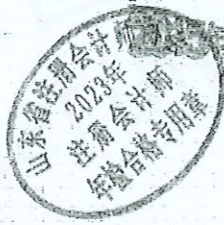 山东省注册会计师
2023年
注册会计师
年检合格专用章